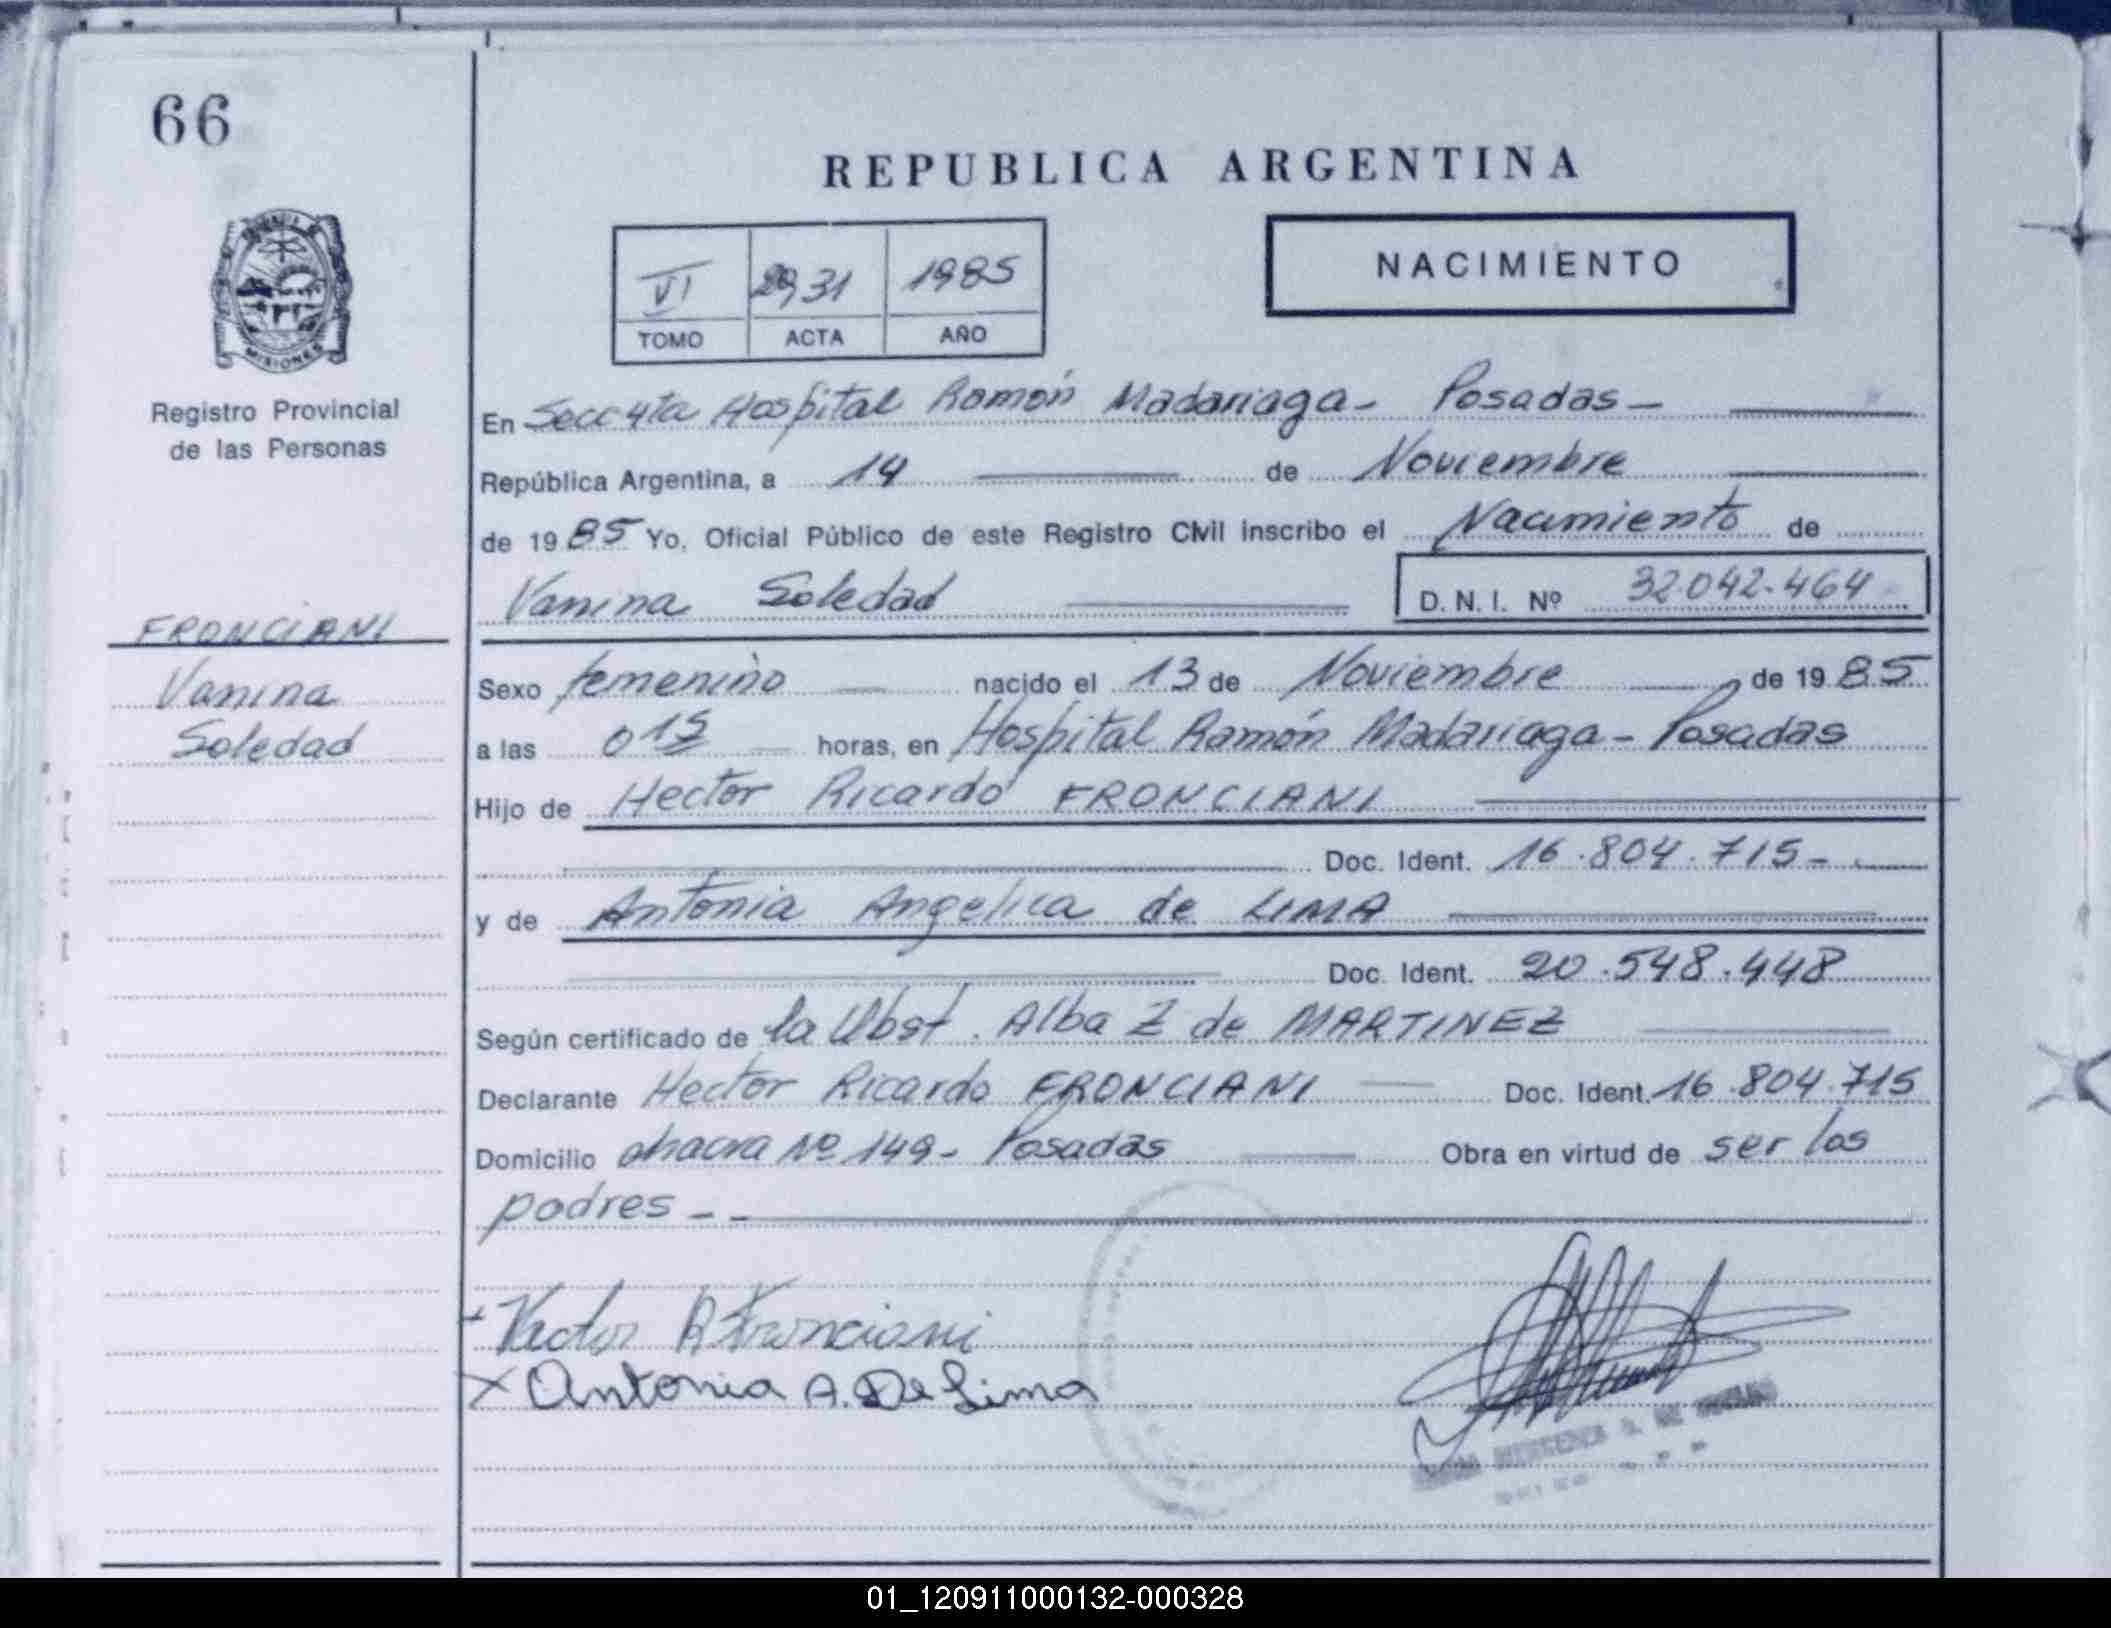 66
REPUBLICA ARGENTINA
NACIMIENTO
VI 2931 1985
TOMO ACTA AÑO
MISIONES
Registro Provincial
de las Personas
En Secc 4ta Hospital Ramón Madariaga - Posadas -
República Argentina, a 14 de Noviembre
de 1985 Yo, Oficial Público de este Registro Civil inscribo el Nacimiento de
Vanina Soledad D. N. I. Nº 32.042.464
FRONCIANI
Vanina
Soledad
Sexo femenino nacido el 13 de Noviembre de 1985
a las 0 15 horas, en Hospital Ramón Madariaga - Posadas
Hijo de Hector Ricardo FRONCIANI
Doc. Ident. 16.804.715 -
y de Antonia Angelica de LIMA
Doc. Ident. 20.548.448
Según certificado de la Obst. Alba Z de MARTINEZ
Declarante Hector Ricardo FRONCIANI Doc. Ident. 16.804.715
Domicilio chacra Nº 149 - Posadas Obra en virtud de ser los
padres - -
Hector R Fronciani
x Antonia A. De Lima
01_120911000132-000328